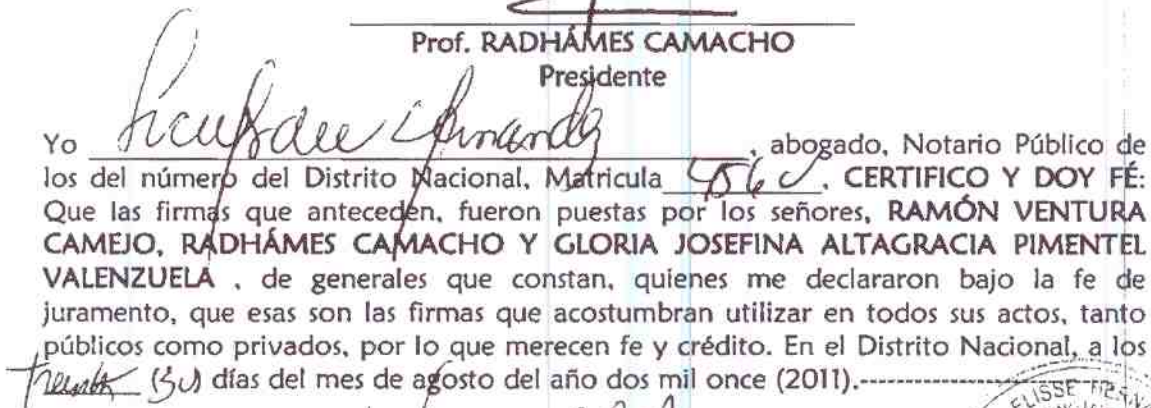 Prof. RADHÁMES CAMACHO
Presidente
Yo , abogado, Notario Público de
los del número del Distrito Nacional, Matricula , CERTIFICO Y DOY FÉ:
Que las firmas que anteceden, fueron puestas por los señores, RAMÓN VENTURA
CAMEJO, RADHÁMES CAMACHO Y GLORIA JOSEFINA ALTAGRACIA PIMENTEL
VALENZUELA , de generales que constan, quienes me declararon bajo la fe de
juramento, que esas son las firmas que acostumbran utilizar en todos sus actos, tanto
públicos como privados, por lo que merecen fe y crédito. En el Distrito Nacional, a los
Treinta (30) días del mes de agosto del año dos mil once (2011).-----------------